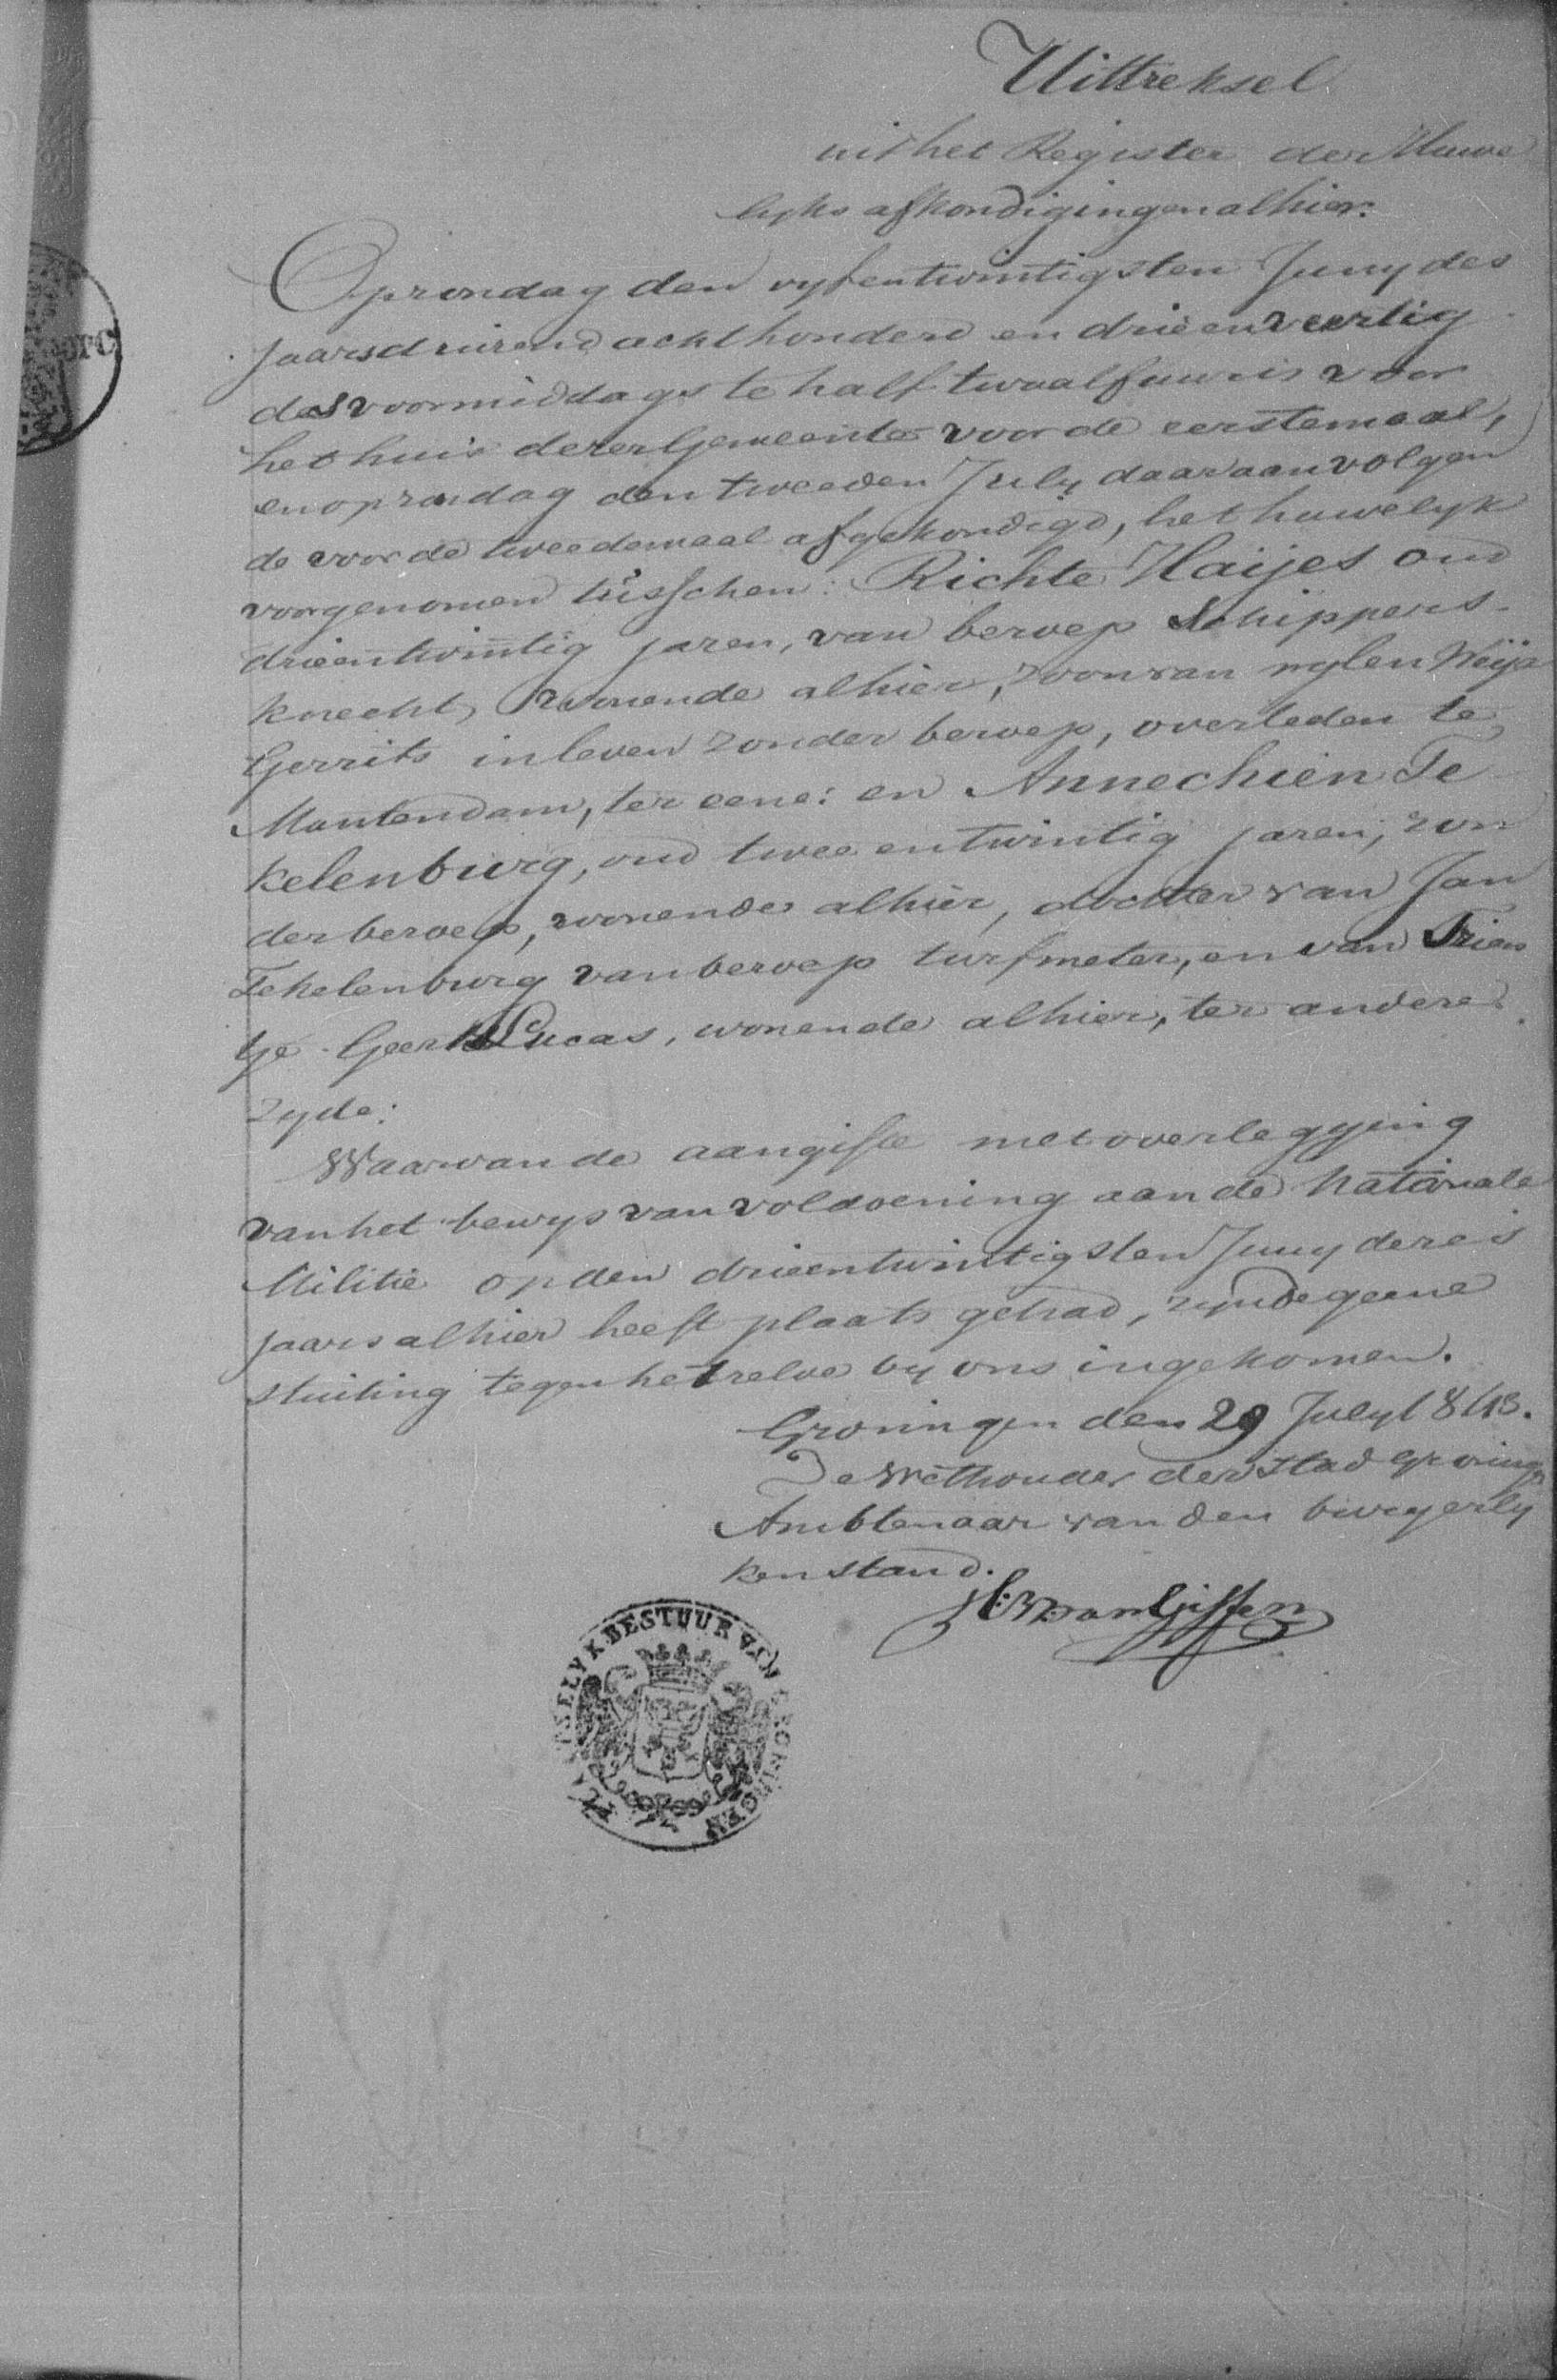 Uittreksel
uit het Register der Huwe
lyks afkondigingen alhier.
Op zondag den vyfentwintigsten Juny des
jaars duizend achthonderd en drieenveertig
des voormiddags te half twaalf uur is voor
het huis dezer Gemeente voor de eerstemaal,
en op zondag den tweeden July daaraanvolgen
de voor de tweedemaal afgekondigd, het huwelyk
voorgenomen tusschen: Richte Haijes oud
drieentwintig jaren, van beroep Schippers-
knecht, wonende alhier, zoon van wylen
Gerrits in leven zonder beroep, overleden te
Muntendam, ter eene: en Annechien Te
kelenburg, oud twee entwintig jaren, zon
der beroep, wonende alhier, dochter van Jan
Tekelenburg van beroep turfmeter, en van Trien
tje Geerts Lucas, wonende alhier, ter andere
zyde:
Waarvan de aangifte met overlegging
van het bewys van voldoening aan de Nationale
Militie op den drieentwintigsten Juny dezes
jaars alhier heeft plaats gehad, zynde geene
stuiting tegen hetzelve by ons ingekomen.
Groningen den 29 July 1843.
De Wethouder der Stad Groningen
Ambtenaar van den burgerly
ken stand.
van Giffen
PLAATSELYK BESTUUR VAN GRONINGEN